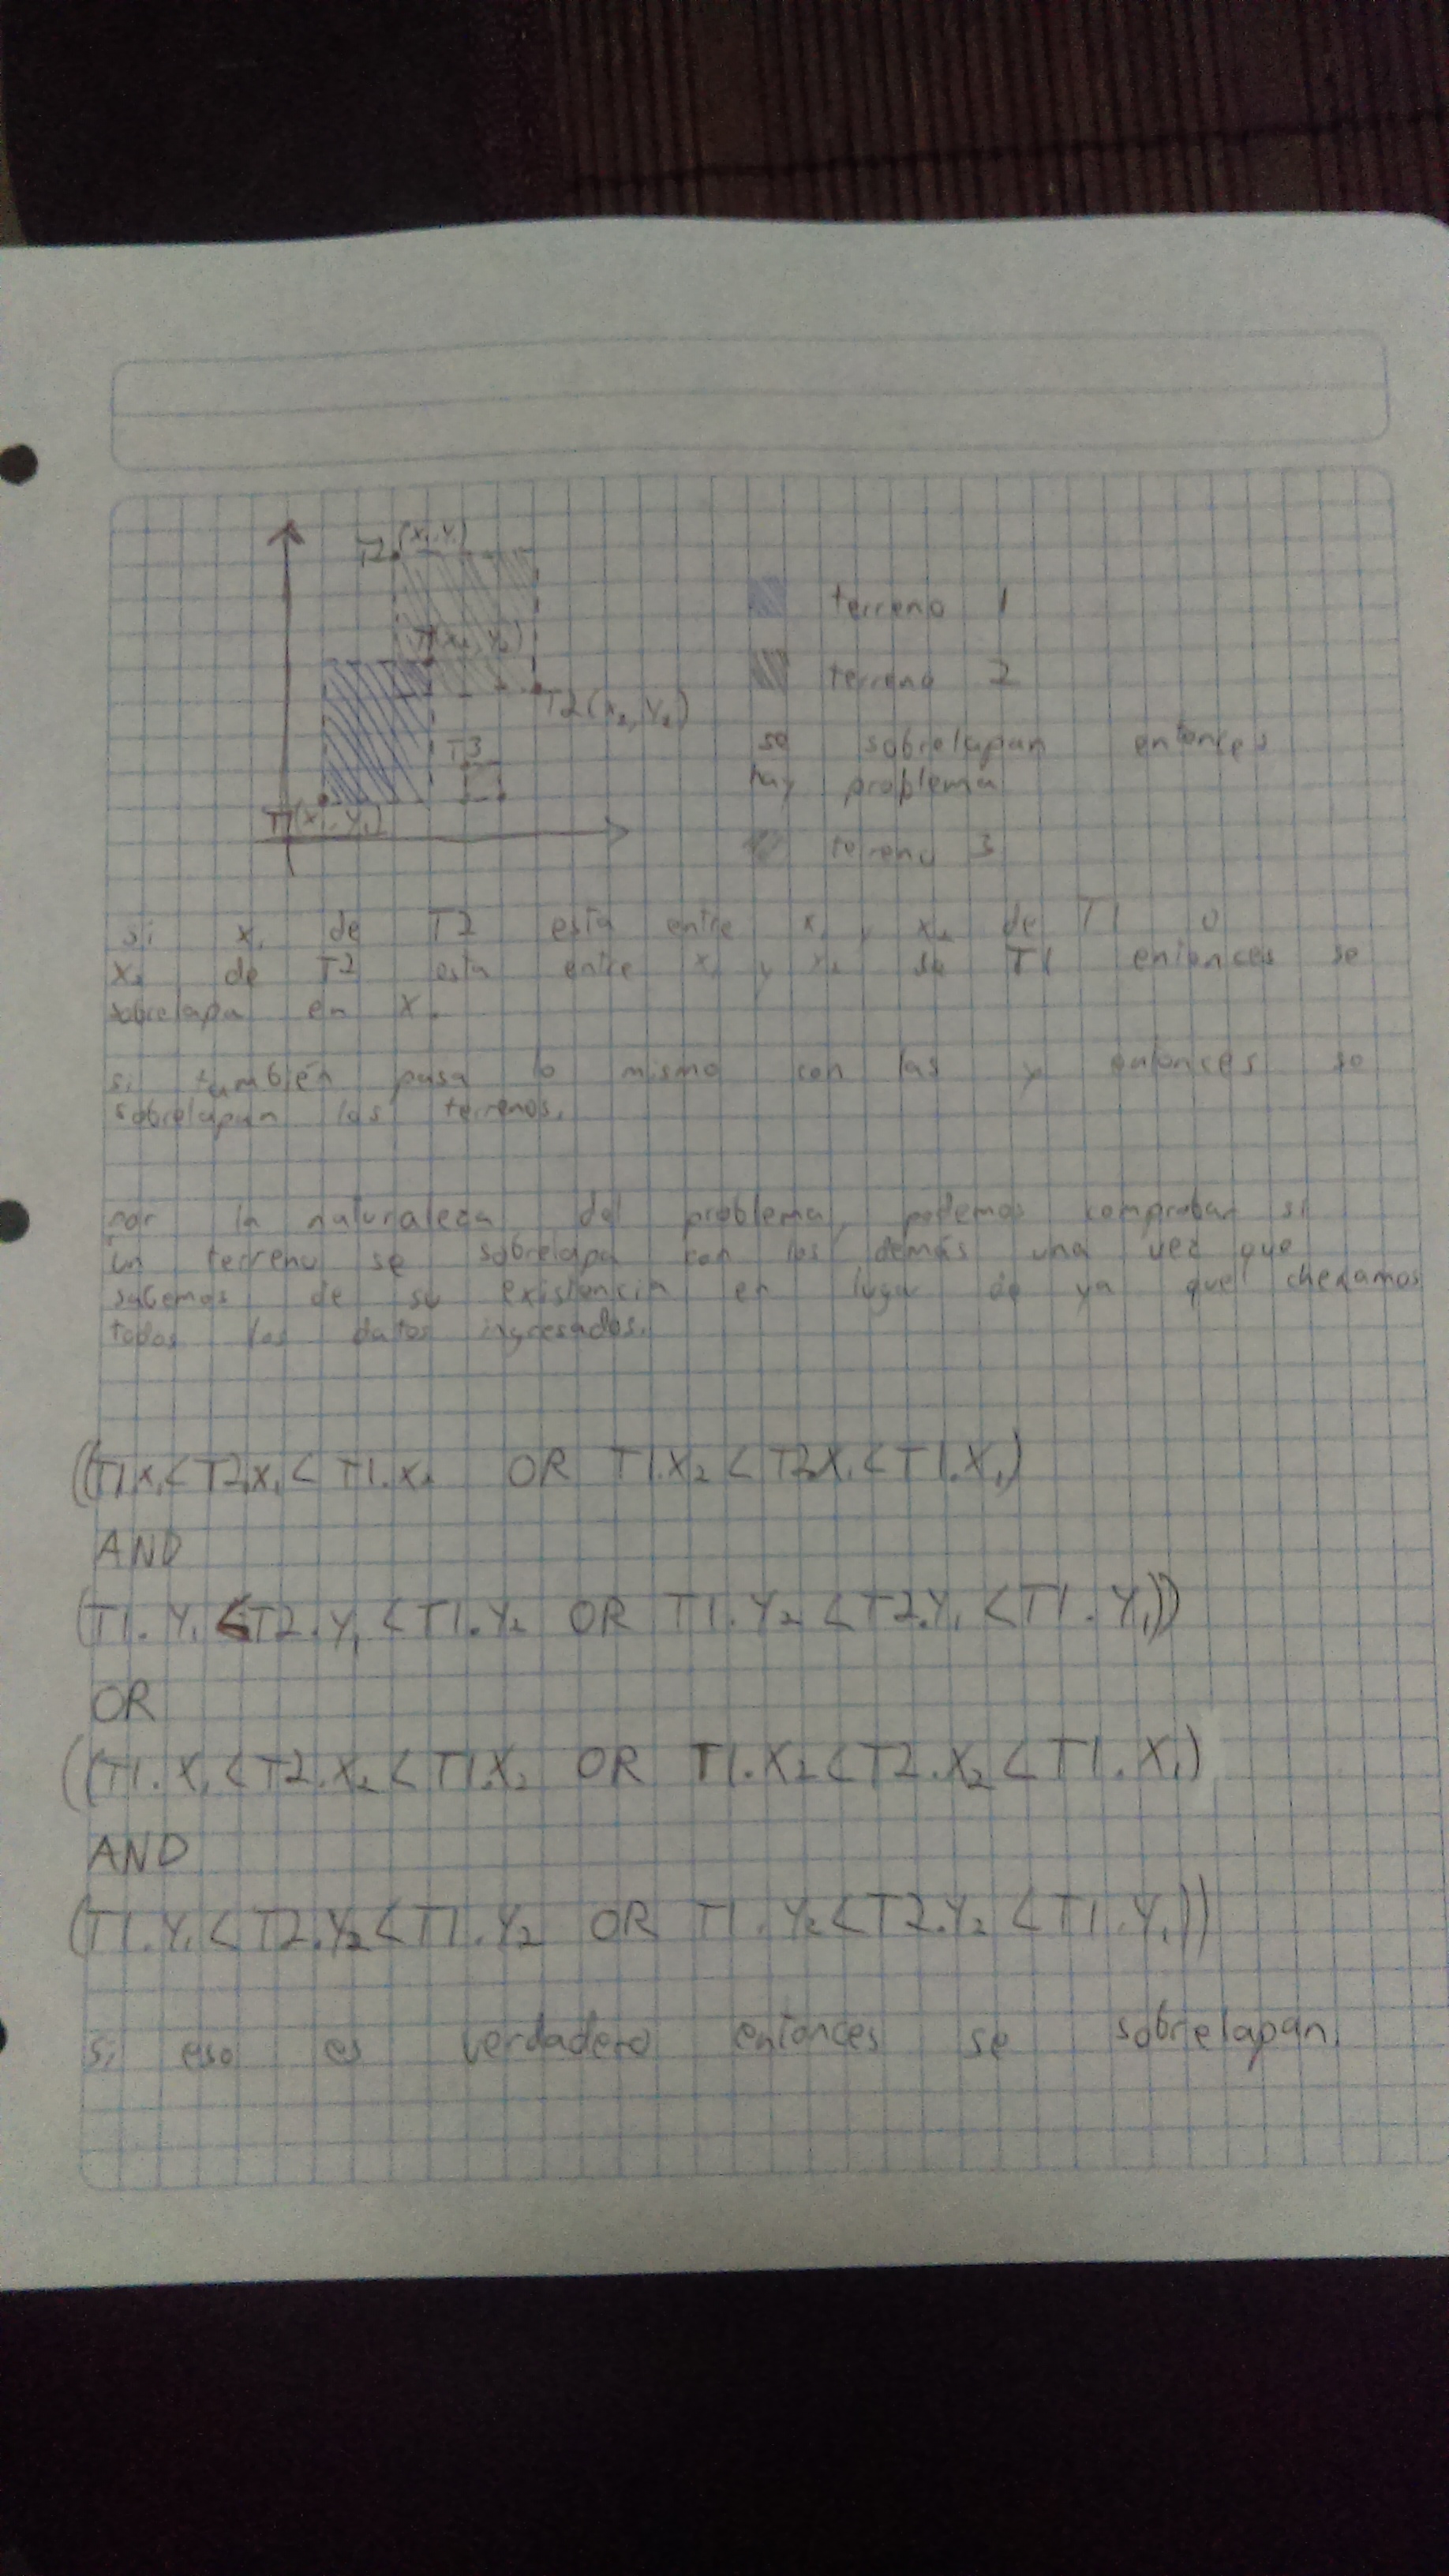 T2 (x₁, y₁)
T1(x₂, y₂)
T2(x₂, y₂)
T3
T1(x₁, y₁)
terreno 1
terreno 2
se sobrelapan entonces
hay problema
terreno 3
si x₁ de T2 esta entre x₁ y x₂ de T1 o
x₂ de T2 esta entre x₁ y x₂ de T1 entonces se
sobrelapa en x.
si también pasa lo mismo con las y entonces se
sobrelapan los terrenos.
por la naturaleza del problema, podemos comprobar si
un terreno se sobrelapa con los demás una vez que
sabemos de su existencia en lugar de ya que checamos
todos los datos ingresados.
((T1.x₁ < T2.x₁ < T1.x₂ OR T1.x₂ < T2.x₁ < T1.x₁)
AND
(T1.y₁ < T2.y₁ < T1.y₂ OR T1.y₂ < T2.y₁ < T1.y₁))
OR
((T1.x₁ < T2.x₂ < T1.x₂ OR T1.x₂ < T2.x₂ < T1.x₁)
AND
(T1.y₁ < T2.y₂ < T1.y₂ OR T1.y₂ < T2.y₂ < T1.y₁))
si eso es verdadero entonces se sobrelapan.